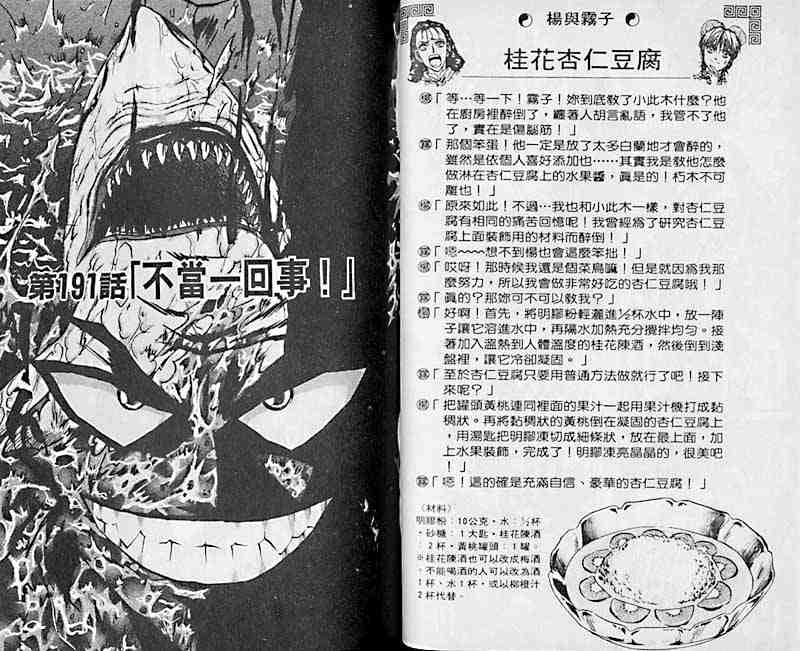 第191話「不當一回事！」
楊與霧子
桂花杏仁豆腐
楊「等…等一下！霧子！妳到底教了小此木什麼？他
在廚房裡醉倒了，纏著人胡言亂語，我管不了他
了，實在是傷腦筋！」
霧「那個笨蛋！他一定是放了太多白蘭地才會醉的，
雖然是依個人喜好添加也……其實我是教他怎麼
做淋在杏仁豆腐上的水果醬，真是的！朽木不可
雕也！」
楊「原來如此！不過…我也和小此木一樣，對杏仁豆
腐有相同的痛苦回憶呢！我曾經為了研究杏仁豆
腐上面裝飾用的材料而醉倒！」
霧「嗯~~~想不到楊也會這麼笨拙！」
楊「哎呀！那時候我還是個菜鳥嘛！但是就因為我那
麼努力，所以我會做非常好吃的杏仁豆腐哦！」
霧「真的？那妳可不可以教我？」
楊「好啊！首先，將明膠粉輕灑進½杯水中，放一陣
子讓它溶進水中，再隔水加熱充分攪拌均勻。接
著加入溫熱到人體溫度的桂花陳酒，然後倒到淺
盤裡，讓它冷卻凝固。」
霧「至於杏仁豆腐只要用普通方法做就行了吧！接下
來呢？」
楊「把罐頭黃桃連同裡面的果汁一起用果汁機打成黏
稠狀。再將黏稠狀的黃桃倒在凝固的杏仁豆腐上
，用湯匙把明膠凍切成細條狀，放在最上面，加
上水果裝飾，完成了！明膠凍亮晶晶的，很美吧
！」
霧「嗯！這的確是充滿自信、豪華的杏仁豆腐！」
〈材料〉
明膠粉：10公克・水：½杯
・砂糖：1大匙・桂花陳酒
：2杯・黃桃罐頭：1罐。
※桂花陳酒也可以改成梅酒
。不能喝酒的人可以改為酒
1杯、水1杯，或以柳橙汁
2杯代替。